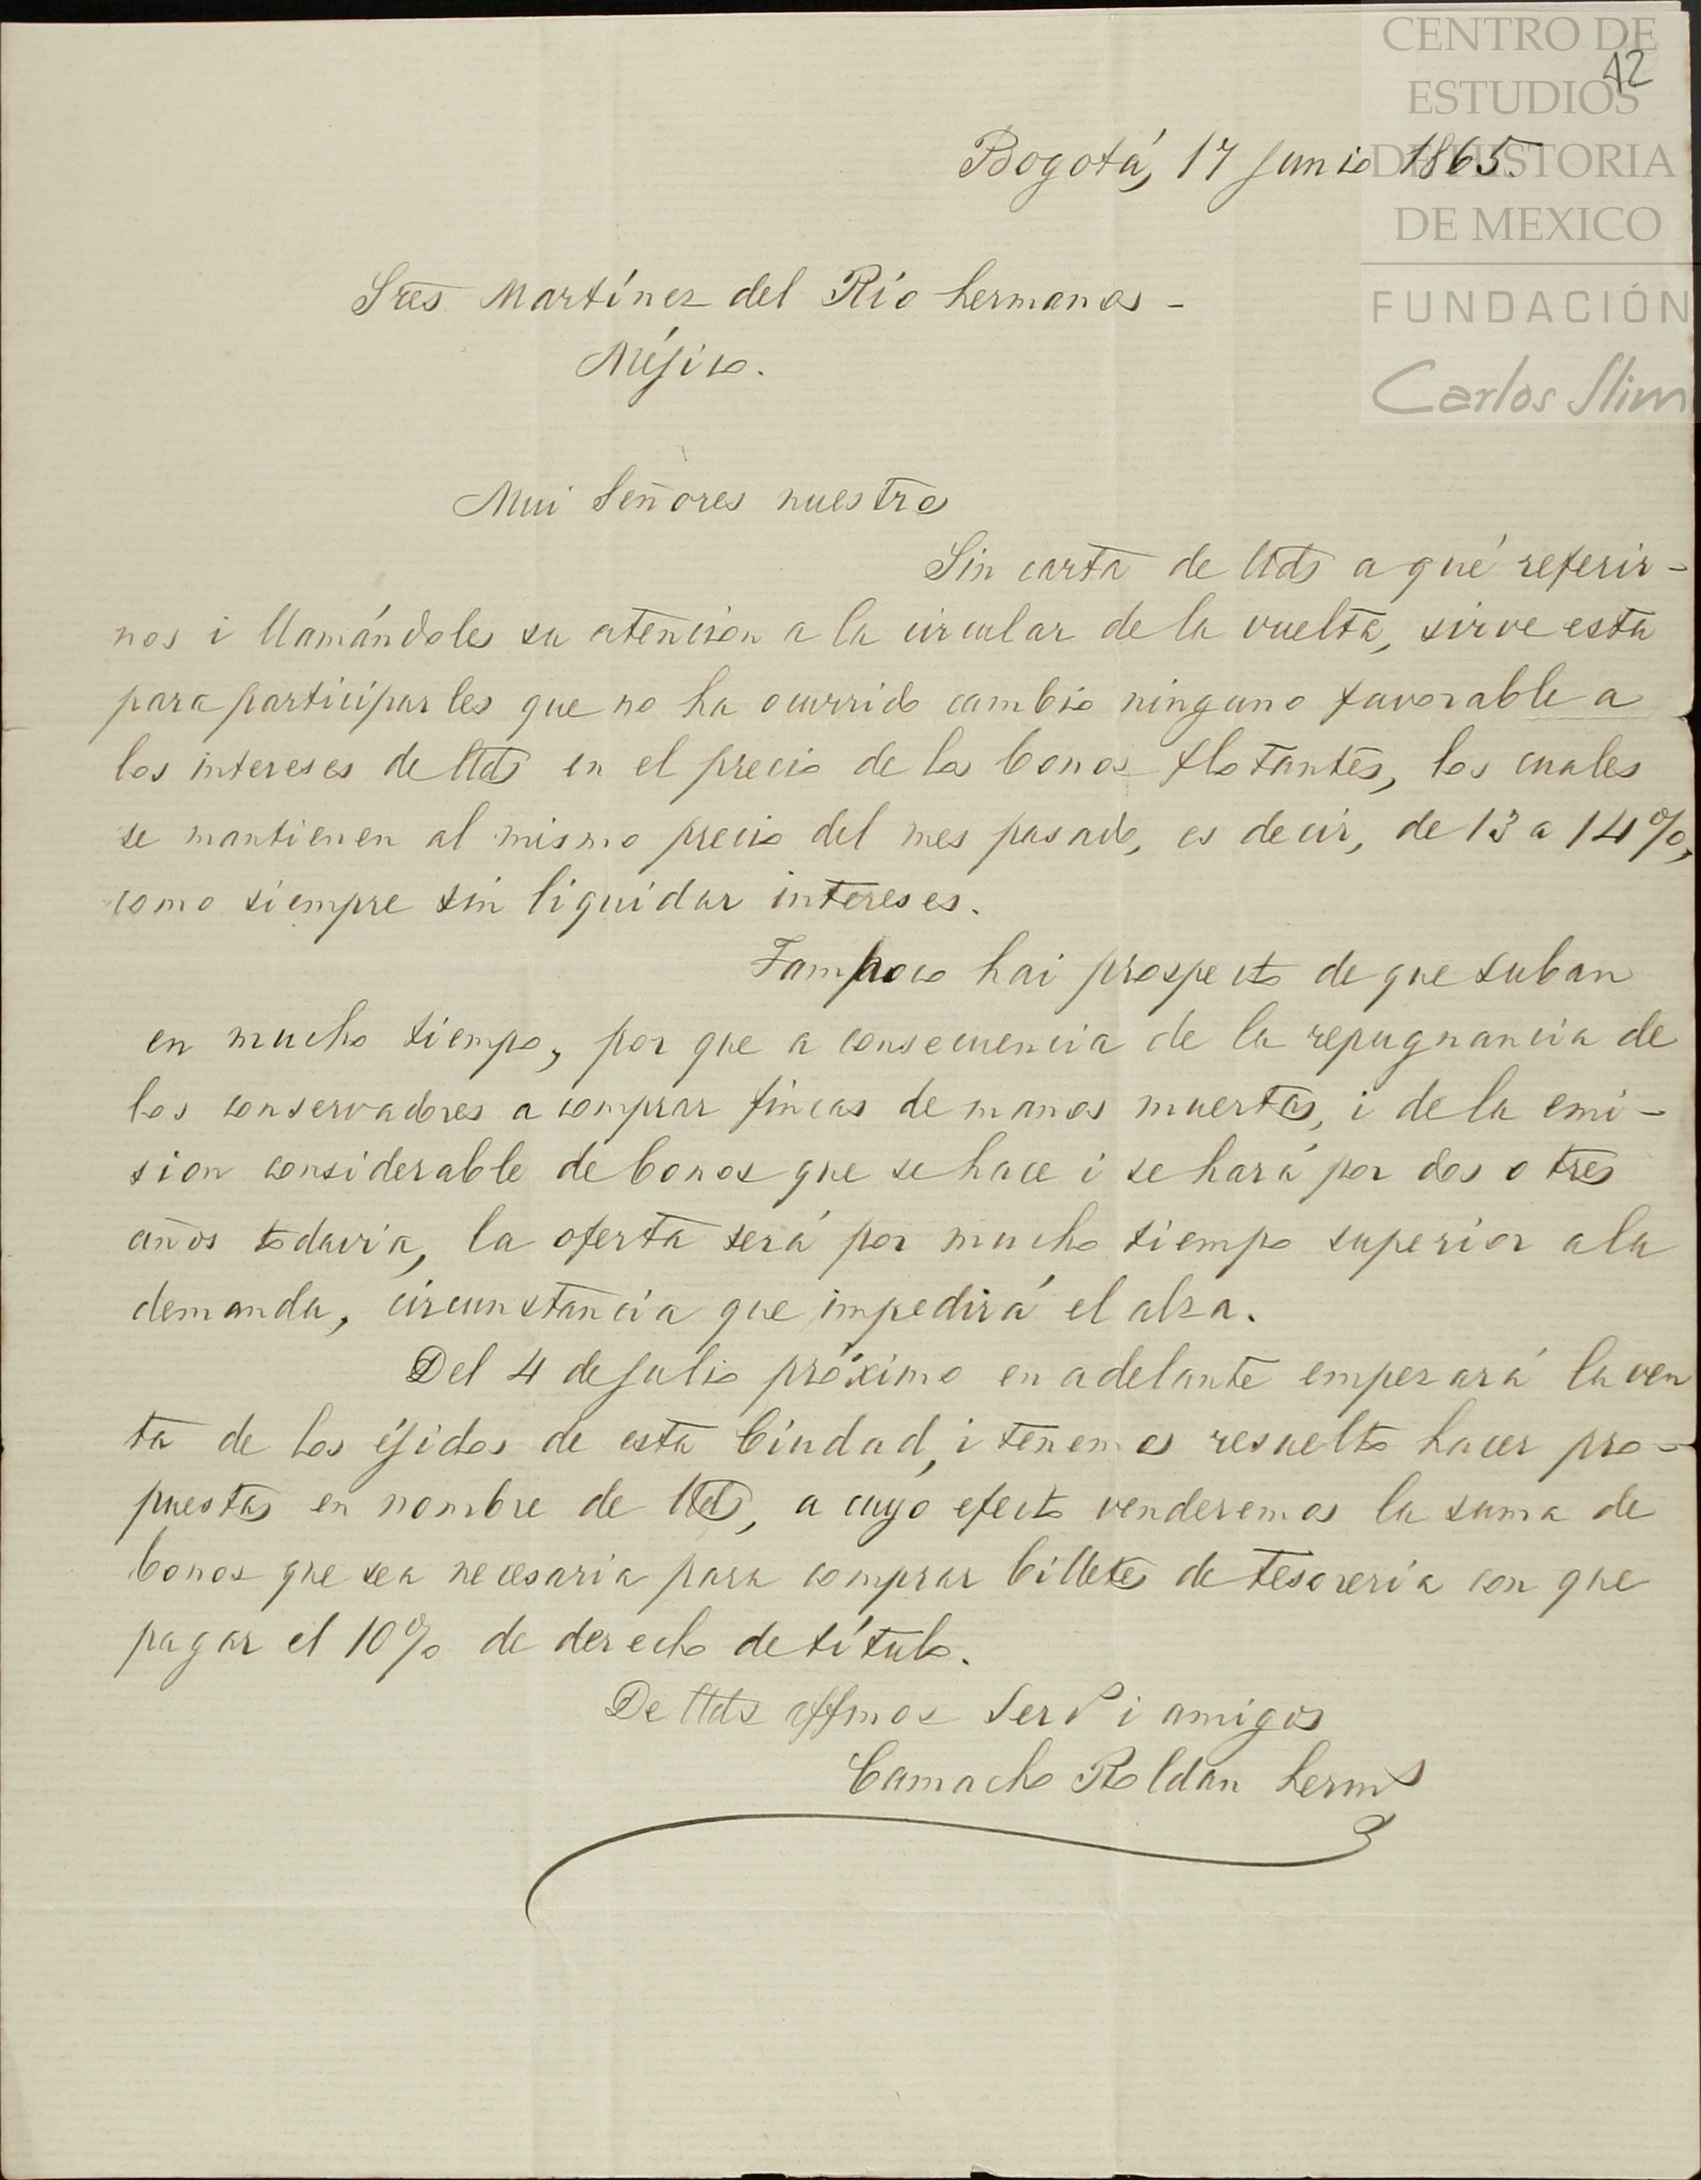 CENTRO DE
42
ESTUDIOS
DE HISTORIA
DE MEXICO
FUNDACIÓN
Carlos Slim
Bogotá, 17 Junio 1865.
Sres Martínez del Río hermanos -
Méjico.
Mui Señores nuestros
Sin carta de Uds a qué referir-
nos i llamándoles su atencion a la circular de la vuelta, sirve esta
para participarles que no ha ocurrido cambio ninguno favorable a
los intereses de Uds en el precio de los bonos flotantes, los cuales
se mantienen al mismo precio del mes pasado, es decir, de 13 a 14%,
como siempre sin liquidar intereses.
Tampoco hai prospecto de que suban
en mucho tiempo, por que a consecuencia de la repugnancia de
los conservadores a comprar fincas de manos muertas, i de la emi-
sion considerable de bonos que se hace i se hará por dos o tres
años todavía, la oferta será por mucho tiempo superior a la
demanda, circunstancia que impedirá el alza.
Del 4 de Julio próximo en adelante empezará la ven
ta de los éjidos de esta Ciudad, i tenemos resuelto hacer pro-
puestas en nombre de Uds, a cuyo efecto venderemos la suma de
bonos que sea necesaria para comprar billetes de tesorería con que
pagar el 10% de derecho de título.
De Uds affmos Servs i amigos
Camacho Roldan herms